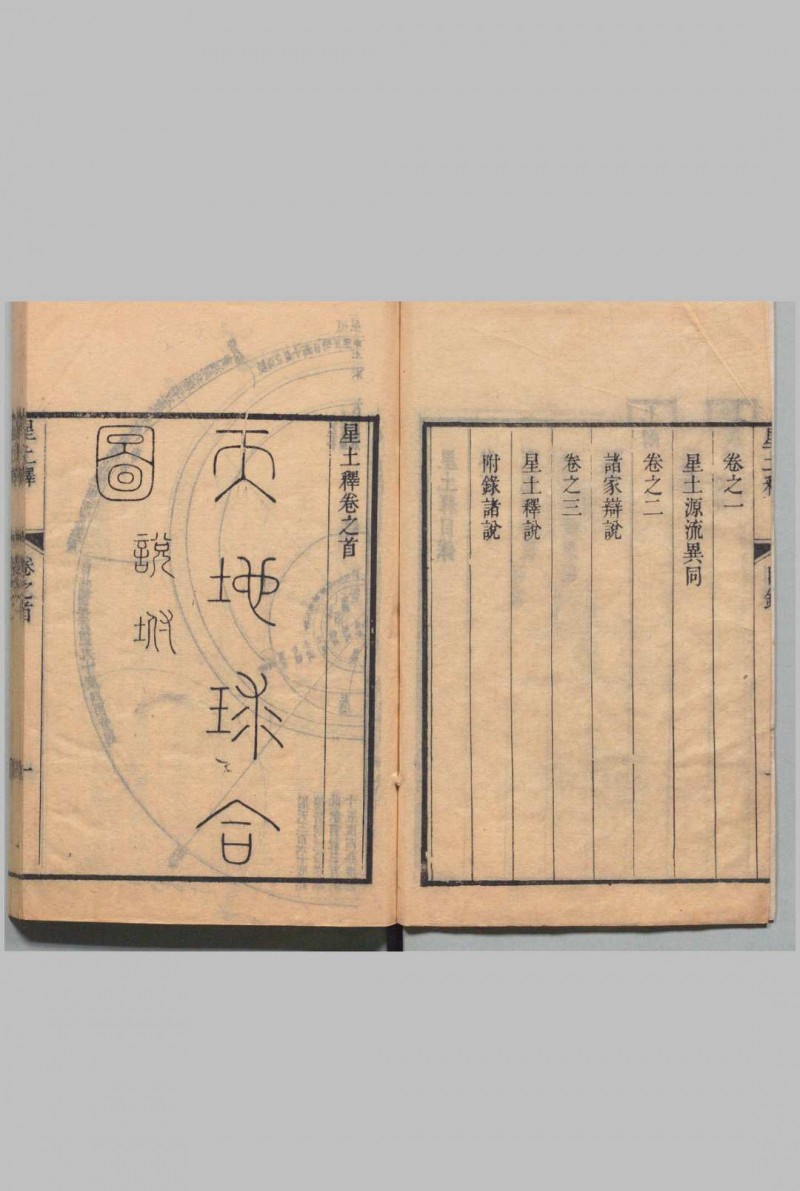 卷之一
星土源流異同
卷之二
諸家辯說
卷之三
星土釋說
附錄諸說
星土釋卷之首
天地球合
圖
說坿
星土釋
卷之首
一